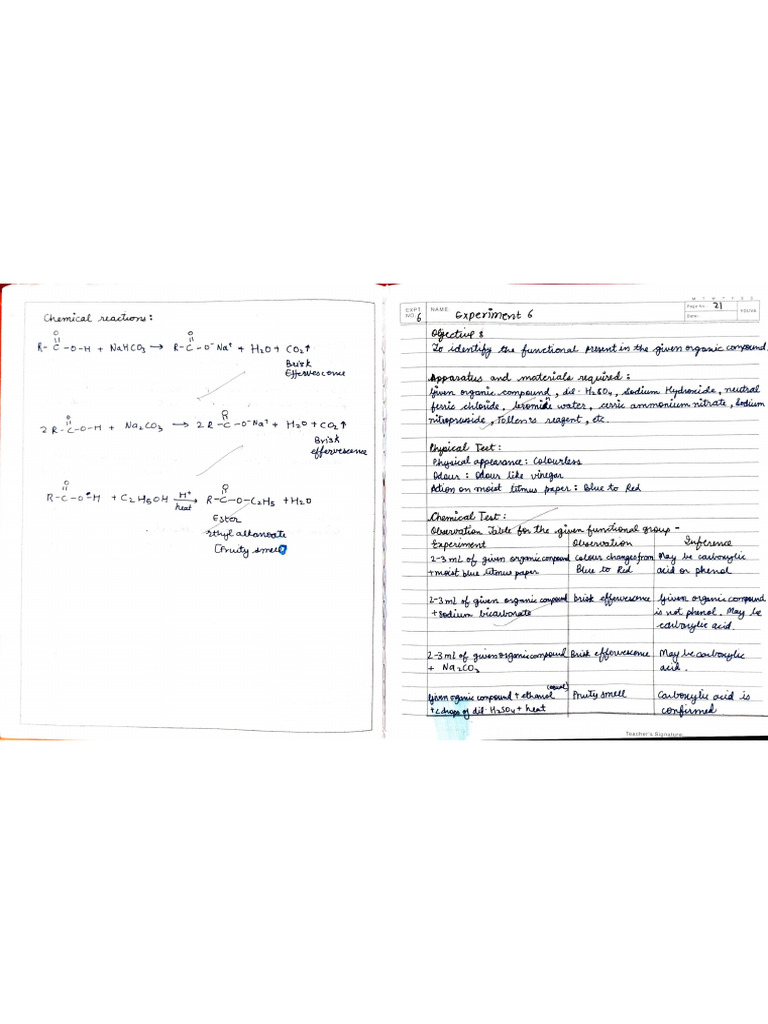 Chemical reactions:
O
R-C-O-H + NaHCO3 → R-C-O⁻Na⁺ + H2O + CO2↑
O
Brisk
Effervescence
O
2R-C-O-H + Na2CO3 → 2R-C-O⁻Na⁺ + H2O + CO2↑
O
Brisk
effervescence
O
R-C-O-H + C2H5OH H⁺ heat → R-C-O-C2H5 + H2O
O
Ester
ethyl alkanoate
(Fruity smell)
M T W T F S S
EXPT. NO. 6
NAME: Experiment 6
Page No.: 21
Date:
YOUVA
Objective :
To identify the functional present in the given organic compound.
Apparatus and materials required :
Given organic compound, dil. H2SO4, Sodium Hydroxide, neutral
ferric chloride, bromide water, cerric ammonium nitrate, sodium
nitroprusside, Tollen's reagent, etc.
Physical Test :
Physical appearance : Colourless
Odour : Odour like vinegar
Action on moist litmus paper : Blue to Red
Chemical Test :
Observation Table for the given functional group -
Experiment Observation Inference
2-3 mL of given organic compound Colour changes from May be carboxylic
+ moist blue litmus paper Blue to Red acid or phenol
2-3 mL of given organic compound Brisk effervescence Given organic compound
+ Sodium bicarbonate is not phenol. May be
carboxylic acid.
2-3 mL of given organic compound Brisk effervescence May be carboxylic
+ Na2CO3 acid.
(equal)
Given organic compound + ethanol Fruity smell Carboxylic acid is
drops of dil. H2SO4 + heat confirmed
Teacher's Signature